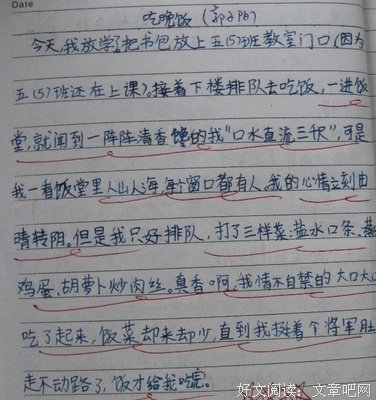 Date
吃晚饭（郭子阳）
今天,我放学了把书包放上五(5)班教室门口(因为
五(5)班还在上课)。接着下楼排队去吃饭,一进饭
堂,就闻到一阵阵清香馋的我“口水直流三尺”,可是
我一看饭堂里人山人海,每个窗口都有人。我的心情立刻由
晴转阴。但是我只好排队,打了三样菜:盐水口条、蒸
鸡蛋、胡萝卜炒肉丝。真香啊,我情不自禁的大口大口
吃了起来,饭菜却来却少,直到我挺着个将军肚
走不动路了,饭才给我吃完。
好文阅读：文章吧网